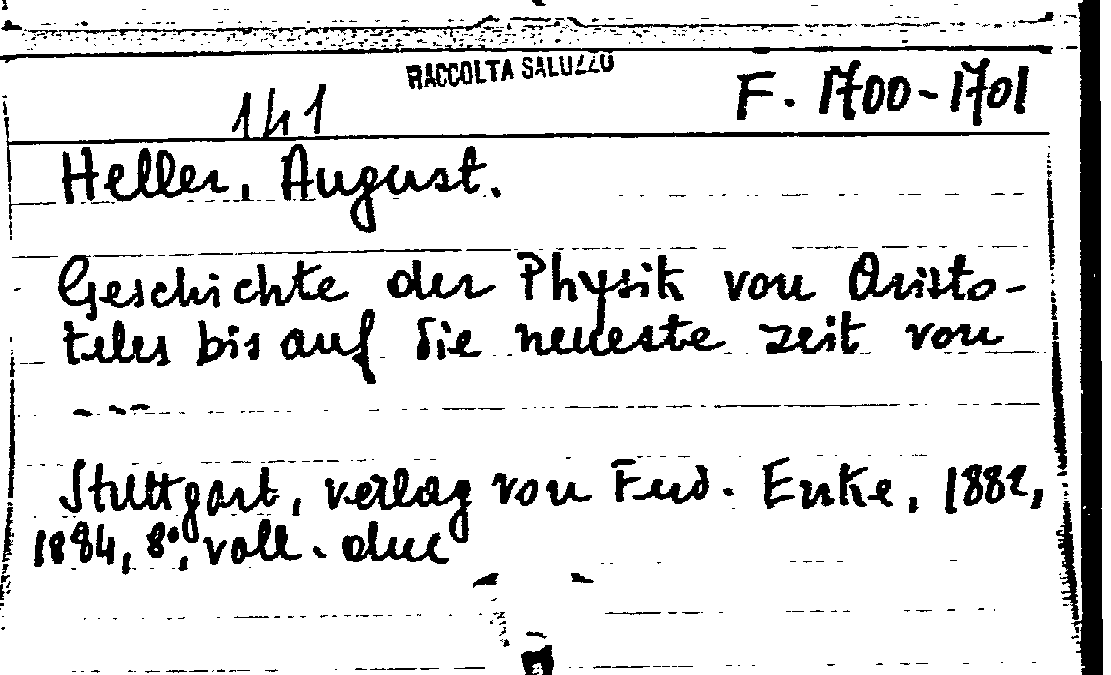 RACCOLTA SALUZZO
F. 1700-1701
141
Heller, August.
Geschichte der Physik von Aristo-
teles bis auf die neueste zeit von
---
Stuttgart, verlag von Ferd. Enke, 1882,
1884, 8°, voll. due